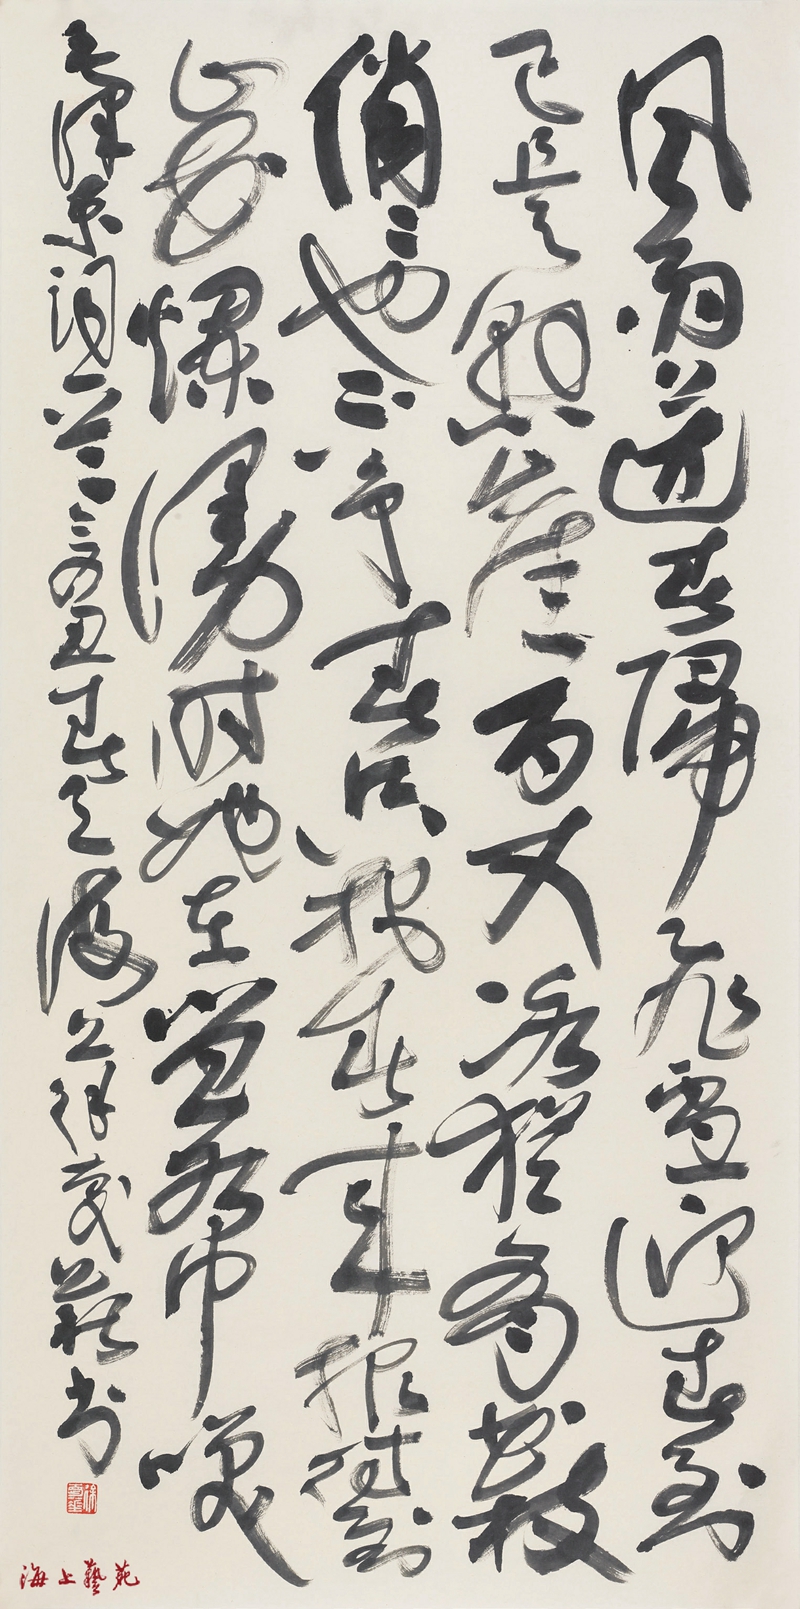 风雨送春归飞雪迎春到
已是悬崖百丈冰犹有花枝
俏〻也不争春只把春来报待到
山花爛漫时她在丛中笑
毛泽东词一首 丑春 书
海上藝苑